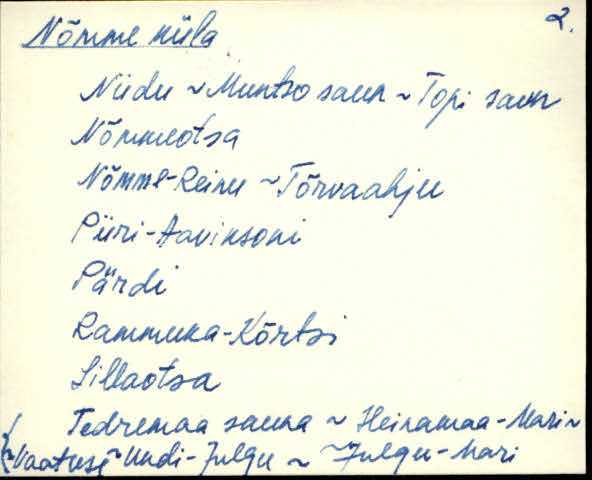 2.
Nõmme küla
Niidu ~ Muntso saun ~ Topi saun
Nõmmeotsa
Nõmme-Reinu ~ Tõrvaahju
Piiri-Aavinsoni
Pärdi
Rammuka-Kõrtsi
Sillaotsa
Tedremaa sauna ~ Heinamaa-Mari ~
~ Uudi-Julgu ~ ~Julgu-Mari